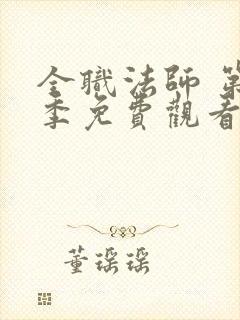 全職法師 第
季免費觀看
董瑶瑶